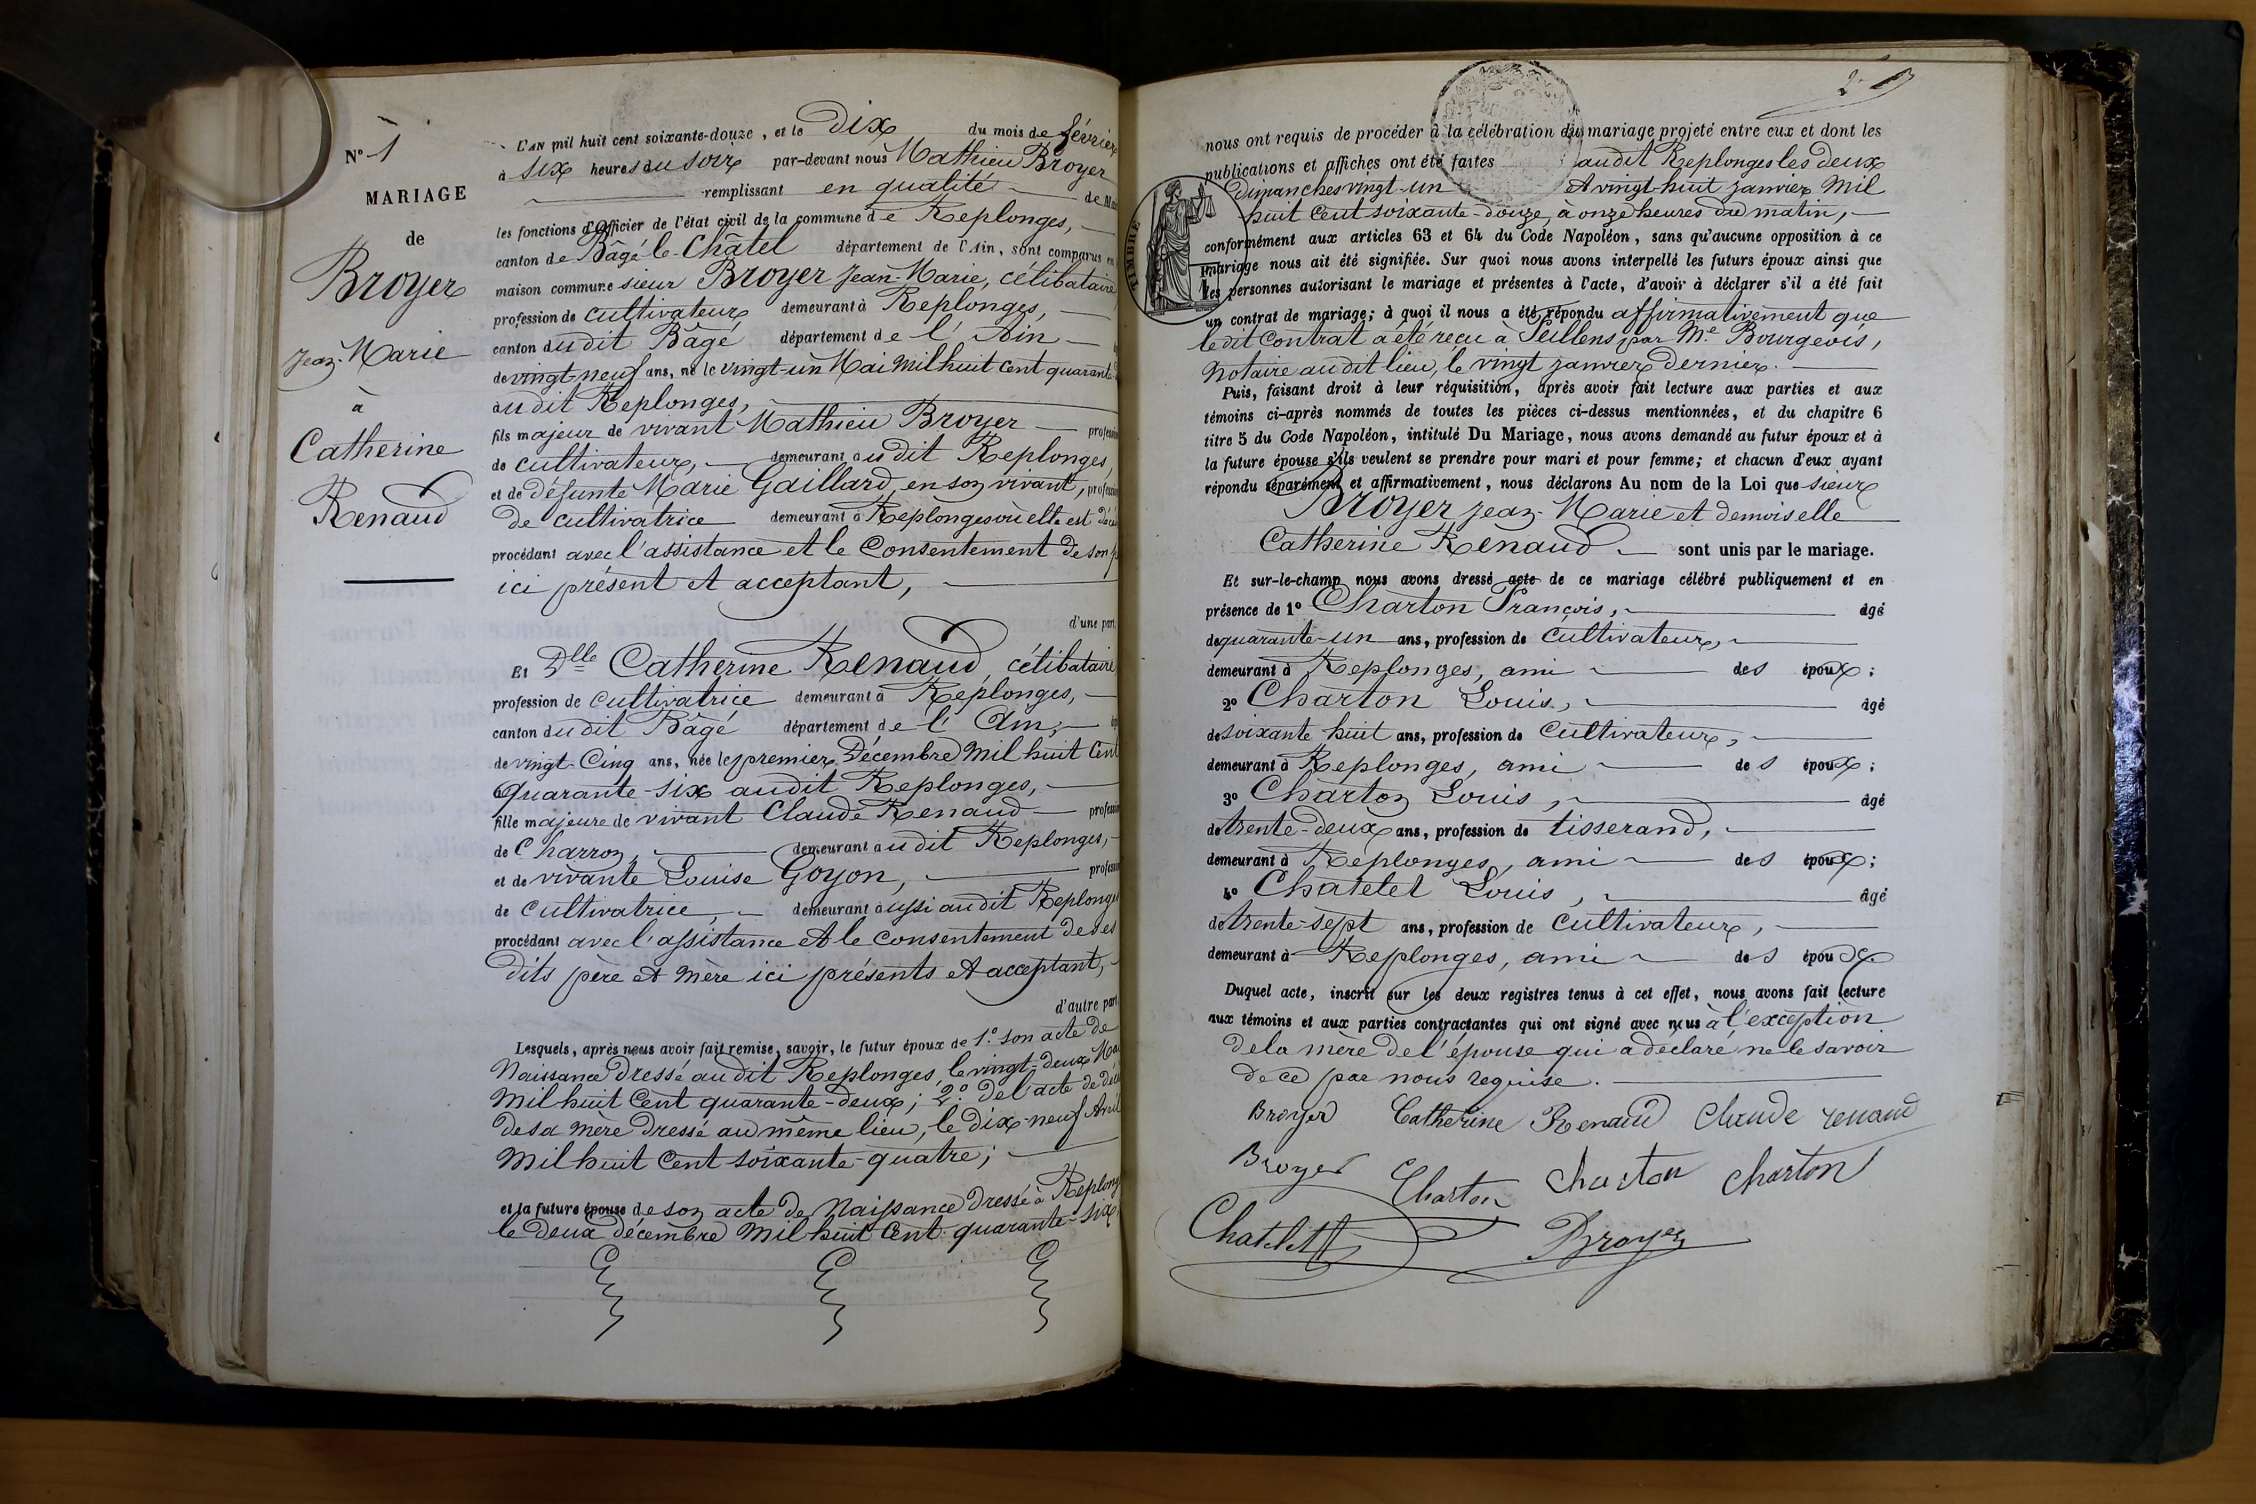 N° 1
MARIAGE
de
Broyer
Jean-Marie
à
Catherine
Renaud
L'AN mil huit cent soixante-douze, et le Dix du mois de février
à six heures du soir par-devant nous Mathieu Broyer
remplissant en qualité de
les fonctions d'Officier de l'état civil de la commune de Replonges,
canton de Bâgé-le-Châtel département de l'Ain, sont comparus en
maison commune sieur Broyer Jean-Marie, célibataire
profession de cultivateur demeurant à Replonges,
canton dudit Bâgé département de l'Ain
de vingt-neuf ans, né le vingt-un Mai mil huit cent quarante
audit Replonges,
fils majeur de vivant Mathieu Broyer
de cultivateur, demeurant audit Replonges,
et de défunte Marie Gaillard, en son vivant,
de cultivatrice demeurant à Replonges où elle est
procédant avec l'assistance et le consentement de son
ici présent et acceptant,
d'une part,
Et Dlle Catherine Renaud, célibataire
profession de cultivatrice demeurant à Replonges,
canton dudit Bâgé département de l'Ain,
de vingt-cinq ans, née le premier Décembre mil huit cent
quarante-six audit Replonges,
fille majeure de vivant Claude Renaud
de Charron, demeurant audit Replonges,
et de vivante Louise Goyon,
de cultivatrice, demeurant aussi audit Replonges
procédant avec l'assistance et le consentement de ses
dits père et mère ici présents et acceptant,
d'autre part.
Lesquels, après nous avoir fait remise, savoir, le futur époux de 1° son acte de
Naissance dressé audit Replonges, le vingt-deux
mil huit cent quarante-deux; 2° de l'acte de
de sa mère dressé au même lieu, le dix-neuf Avril
mil huit cent soixante-quatre;
et la future épouse de son acte de Naissance dressé à
le deux décembre mil huit cent quarante-six
2
nous ont requis de procéder à la célébration du mariage projeté entre eux et dont les
publications et affiches ont été faites audit Replonges les deux
dimanches vingt-un et vingt-huit janvier mil
huit cent soixante-douze, à onze heures du matin,
conformément aux articles 63 et 64 du Code Napoléon, sans qu'aucune opposition à ce
mariage nous ait été signifiée. Sur quoi nous avons interpellé les futurs époux ainsi que
les personnes autorisant le mariage et présentes à l'acte, d'avoir à déclarer s'il a été fait
un contrat de mariage; à quoi il nous a été répondu affirmativement que
ledit contrat a été reçu à Feillens par Me Bourgeois,
Notaire audit lieu, le vingt janvier dernier.
Puis, faisant droit à leur réquisition, après avoir fait lecture aux parties et aux
témoins ci-après nommés de toutes les pièces ci-dessus mentionnées, et du chapitre 6
titre 5 du Code Napoléon, intitulé Du Mariage, nous avons demandé au futur époux et à
la future épouse s'ils veulent se prendre pour mari et pour femme; et chacun d'eux ayant
répondu séparément et affirmativement, nous déclarons Au nom de la Loi que sieur
Broyer Jean-Marie et demoiselle
Catherine Renaud sont unis par le mariage.
Et sur-le-champ nous avons dressé acte de ce mariage célébré publiquement et en
présence de 1° Charton François, âgé
de quarante-un ans, profession de cultivateur,
demeurant à Replonges, ami des époux;
2° Charton Louis, âgé
de soixante huit ans, profession de cultivateur,
demeurant à Replonges, ami des époux;
3° Charton Louis, âgé
de trente-deux ans, profession de tisserand,
demeurant à Replonges, ami des époux;
4° Chatelet Louis, âgé
de trente-sept ans, profession de cultivateur,
demeurant à Replonges, ami des époux
Duquel acte, inscrit sur les deux registres tenus à cet effet, nous avons fait lecture
aux témoins et aux parties contractantes qui ont signé avec nous à l'exception
de la mère de l'épouse qui a déclaré ne le savoir
de ce par nous requise.
Broyer Catherine Renaud Claude renaud
Broyer Charton Charton Charton
Chatelet Broyer
TIMBRE